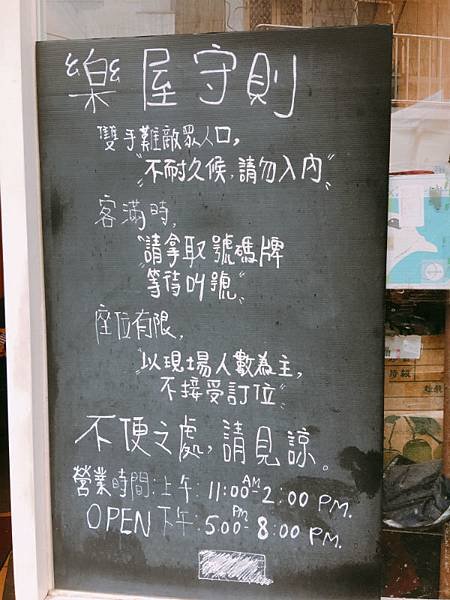 樂屋守則
雙手難敵眾人口，
"不耐久候，請勿入內"
客滿時，
"請拿取號碼牌
等待叫號"
座位有限，
"以現場人數為主，
不接受訂位"
不便之處，請見諒。
營業時間：上午：11:00AM-2:00 PM.
OPEN 下午：5:00PM-8:00 PM.